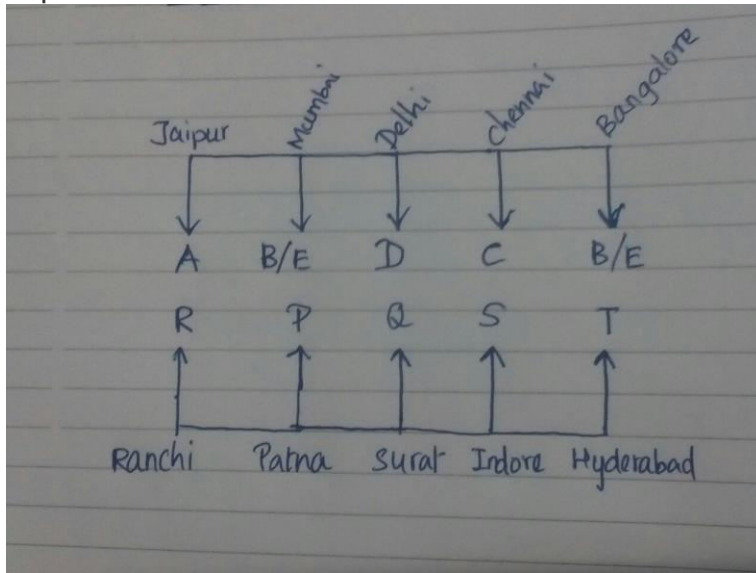 Jaipur Mumbai Delhi Chennai Bangalore
A B/E D C B/E
R P Q S T
Ranchi Patna Surat Indore Hyderabad